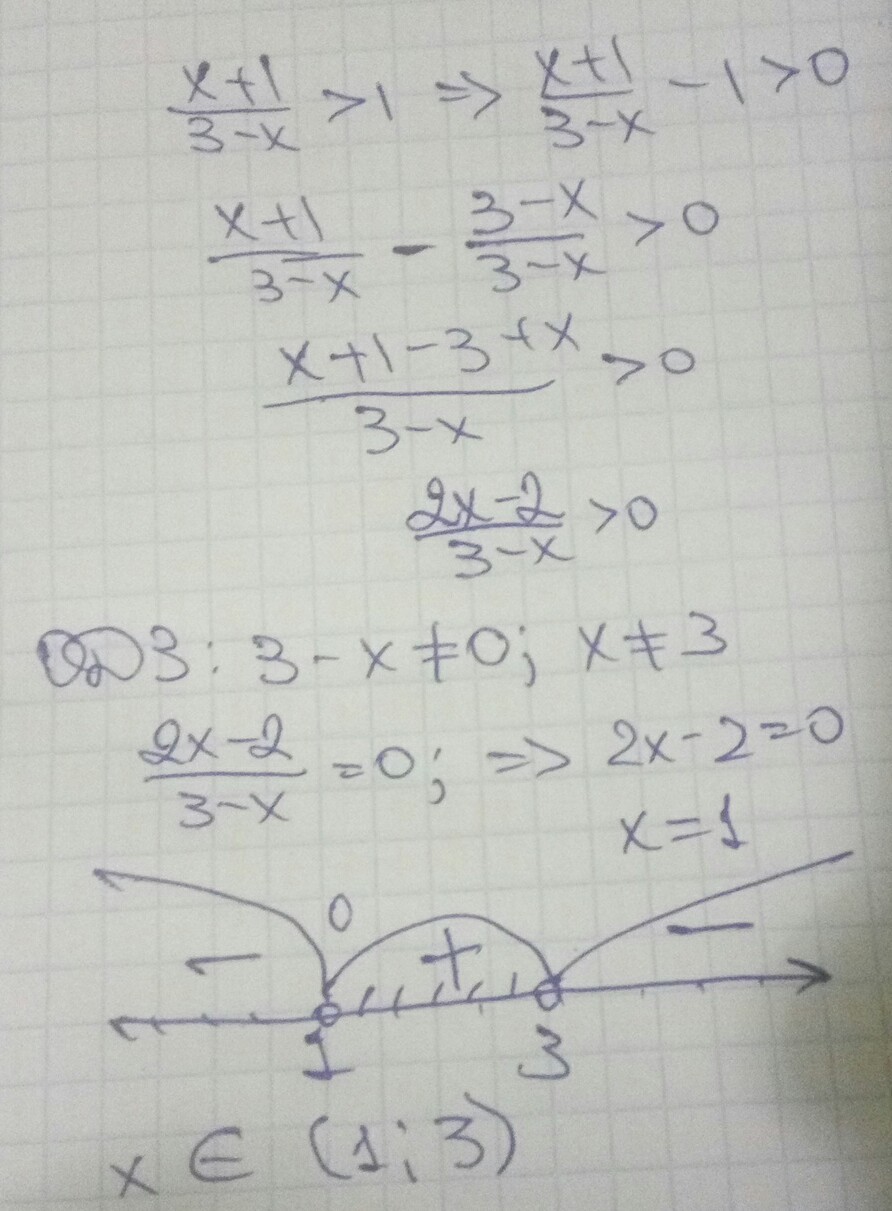 (x+1)/(3-x) > 1 => (x+1)/(3-x) - 1 > 0
(x+1)/(3-x) - (3-x)/(3-x) > 0
(x+1-3+x)/(3-x) > 0
(2x-2)/(3-x) > 0
ОДЗ: 3-x≠0; x≠3
(2x-2)/(3-x) = 0; => 2x-2=0
x=1
0
- + -
1 3
x ∈ (1; 3)